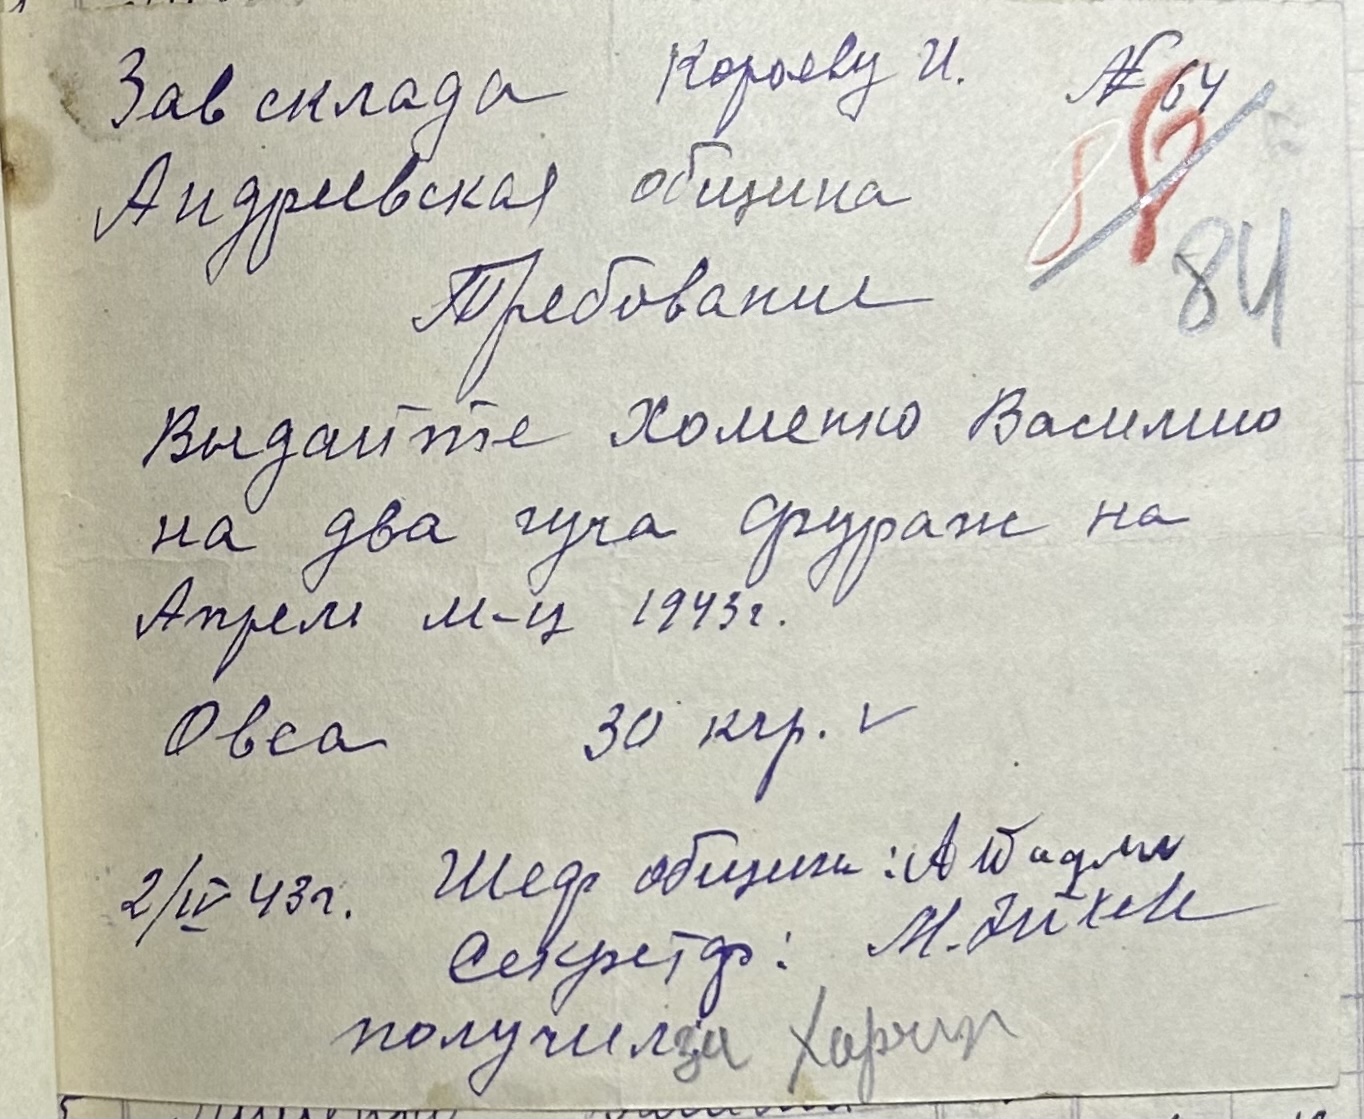 Зав склада Короеву И. № 64
84
Андреевская община
Требование
Выдайте Хоменко Василию
на два гуча фураж на
Апрель м-ц 1943 г.
Овса 30 кгр.
2/IV 43 г. Шеф общины:
Секретарь: М.
получил за